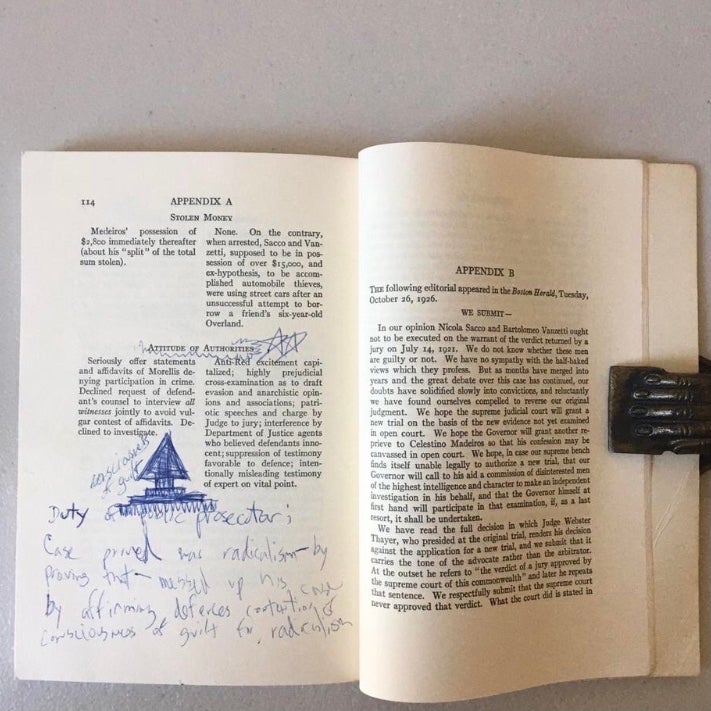 114 APPENDIX A
STOLEN MONEY
Medeiros' possession of
$2,800 immediately thereafter
(about his "split" of the total
sum stolen).
None. On the contrary,
when arrested, Sacco and Van-
zetti, supposed to be in pos-
session of over $15,000, and
ex-hypothesis, to be accom-
plished automobile thieves,
were using street cars after an
unsuccessful attempt to bor-
row a friend's six-year-old
Overland.
ATTITUDE OF AUTHORITIES
Seriously offer statements
and affidavits of Morellis de-
nying participation in crime.
Declined request of defend-
ant's counsel to interview all
witnesses jointly to avoid vul-
gar contest of affidavits. De-
clined to investigate.
Anti-Red excitement capi-
talized; highly prejudicial
cross-examination as to draft
evasion and anarchistic opin-
ions and associations; patri-
otic speeches and charge by
Judge to jury; interference by
Department of Justice agents
who believed defendants inno-
cent; suppression of testimony
favorable to defence; inten-
tionally misleading testimony
of expert on vital point.
consciousness
of guilt
Duty of public prosecutor;
Case proved was radicalism – by
proving that – messed up his case
by affirming defences contention of
consciousness of guilt for radicalism
APPENDIX B
THE following editorial appeared in the Boston Herald, Tuesday,
October 26, 1926.
WE SUBMIT—
In our opinion Nicola Sacco and Bartolomeo Vanzetti ought
not to be executed on the warrant of the verdict returned by a
jury on July 14, 1921. We do not know whether these men
are guilty or not. We have no sympathy with the half-baked
views which they profess. But as months have merged into
years and the great debate over this case has continued, our
doubts have solidified slowly into convictions, and reluctantly
we have found ourselves compelled to reverse our original
judgment. We hope the supreme judicial court will grant a
new trial on the basis of the new evidence not yet examined
in open court. We hope the Governor will grant another re-
prieve to Celestino Madeiros so that his confession may be
canvassed in open court. We hope, in case our supreme bench
finds itself unable legally to authorize a new trial, that our
Governor will call to his aid a commission of disinterested men
of the highest intelligence and character to make an independent
investigation in his behalf, and that the Governor himself at
first hand will participate in that examination, if, as a last
resort, it shall be undertaken.
We have read the full decision in which Judge Webster
Thayer, who presided at the original trial, renders his decision
against the application for a new trial, and we submit that it
carries the tone of the advocate rather than the arbitrator.
At the outset he refers to "the verdict of a jury approved by
the supreme court of this commonwealth" and later he repeats
that sentence. We respectfully submit that the supreme court
never approved that verdict. What the court did is stated in